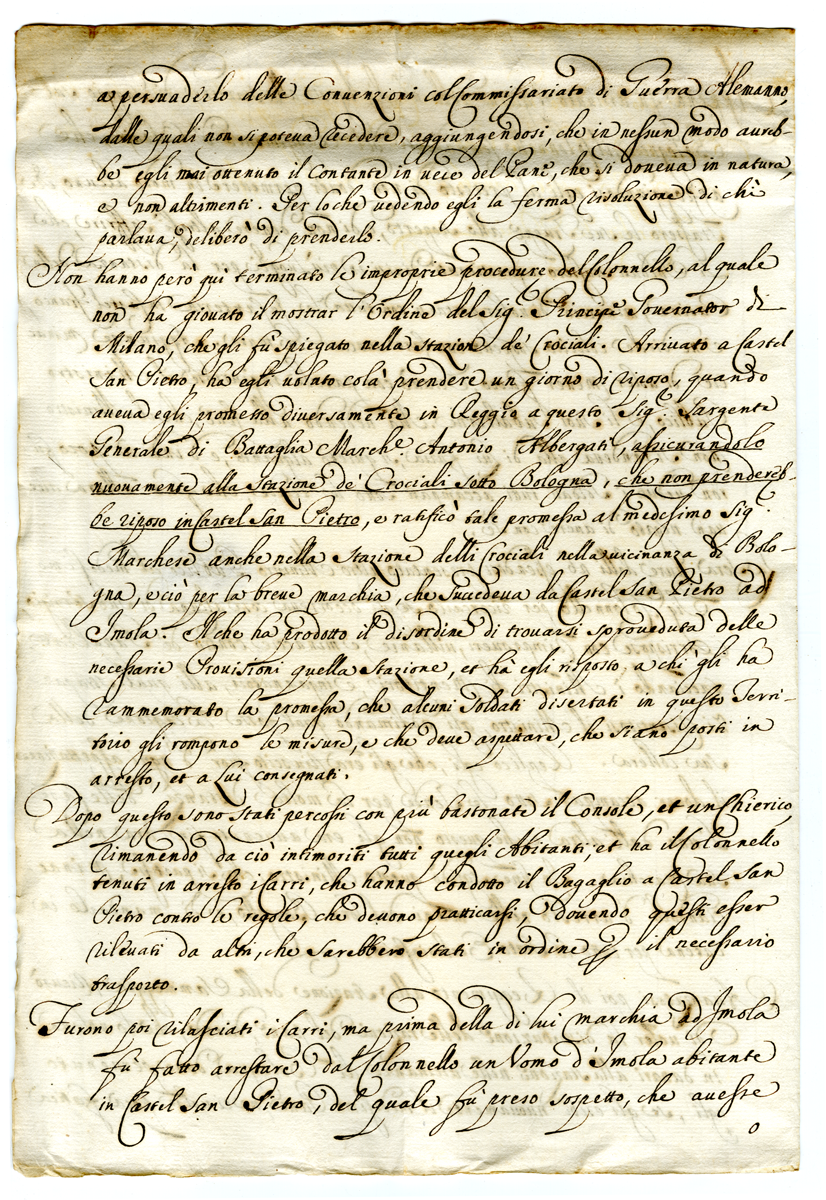 a persuaderlo delle Convenzioni col Commissariato di Guerra Alemanno,
dalle quali non si poteva recedere, aggiungendosi, che in nessun modo avreb-
be egli mai ottenuto il Contante in vece del Pane, che si doveva in natura,
e non altrimenti. Per loche vedendo egli la ferma risoluzione di chi
parlava, deliberò di prenderlo.
Non hanno però quì terminato le improprie procedure del Colonnello, al quale
non ha giovato il mostrar l'Ordine del Sig.r Principe Governator di
Milano, che gli fù spiegato nella stazione de' Crociali. Arrivato a Castel
San Pietro, ha egli voluto colà prendere un giorno di riposo, quando
aveva egli promesso diversamente in Reggio a questo Sig.r Sargente
Generale di Battaglia March.e Antonio Albergati, assicurandolo
nuovamente alla stazione de' Crociali sotto Bologna, che non prendereb-
be riposo in Castel San Pietro, e ratificò tale promessa al medesimo Sig.r
Marchese anche nella Stazione delli Crociali nella vicinanza di Bolo-
gna, e ciò per la breve marchia, che succedeva da Castel San Pietro ad
Imola. Il che ha prodotto il disordine di trovarsi sproveduta delle
necessarie Provisioni quella stazione, et hà egli risposto a chi gli ha
rammemorato la promessa, che alcuni Soldati disertati in questo Terri-
torio gli rompono le misure, e che deve aspettare, che siano posti in
arresto, et a Lui consegnati.
Dopo questo sono stati percossi con più bastonate il Console, et un Chierico,
rimanendo da ciò intimoriti tutti quegli Abitanti; et ha il Colonnello
tenuti in arresto i Carri, che hanno condotto il Bagaglio a Castel San
Pietro contro le regole, che devono pratticarsi, dovendo questi esser
rilevati da altri, che sarebbero stati in ordine il necessario
trasporto.
Furono poi rilasciati i Carri, ma prima della di lui marchia ad Imola
fù fatto arrestare dal Colonnello un Vomo d'Imola abitante
in Castel San Pietro, del quale fù preso sospetto, che avesse
o